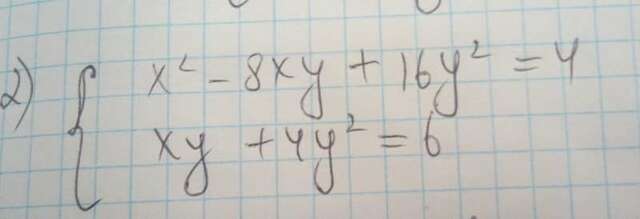 2) { x² - 8xy + 16y² = 4
xy + 4y² = 6